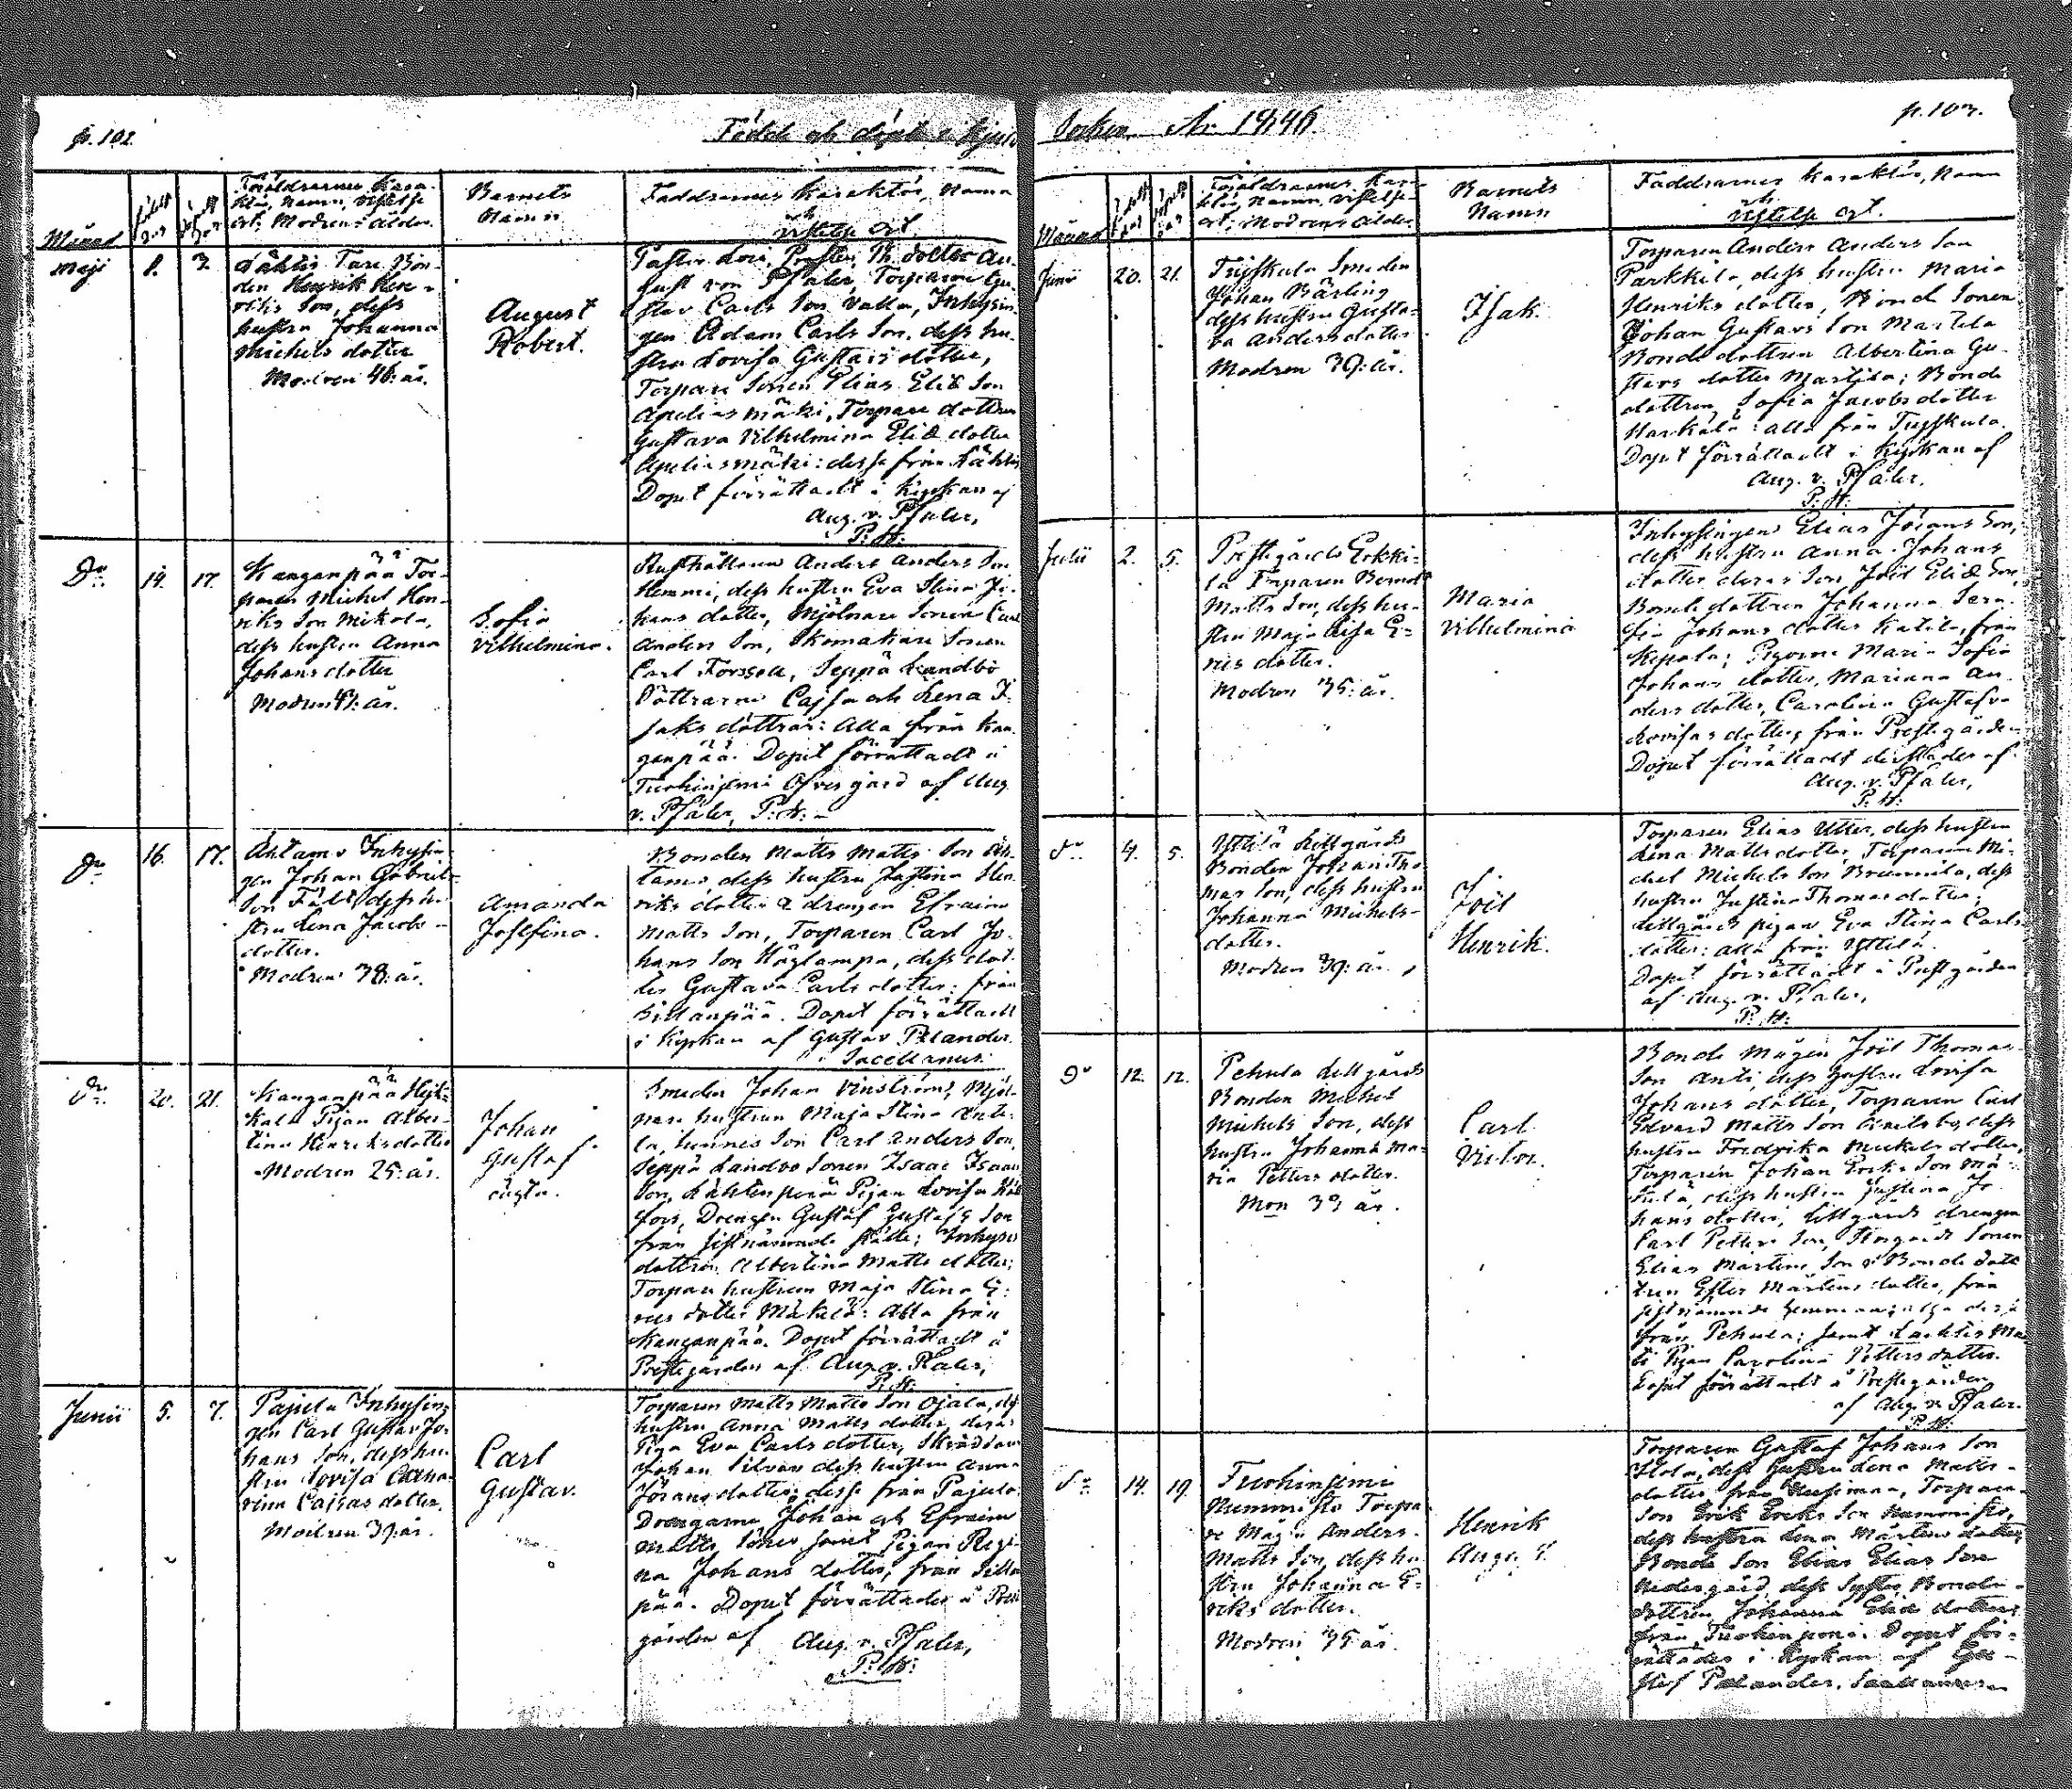 p. 102.
Född och döpt i
Månad
Barnets
Namn
Faddrarnes karaktär, Namn
och
vistelse ort.
Maji 1. 3.
Tare Bon-
den Henrik
Son, dess
hustru Johanna
Michels dotter
Modren 46: år.
August
Robert.
Doctor Au-
gust von Pfaler, Torparen Gu-
stav Carls Son Valla, Inhysin-
gen Adam Carls Son, dess hu-
stru Lovisa Gustavs dotter,
Torpare Sonen Elias Eliæ Son
Torpare dottren
Gustava Vilhelmina Eliæ dotter
desse från
Dopet förrättadt i Kyrkan af
Aug. v. Pfaler,
P: H:
Do 14. 17.
Kanganpää Tor-
paren Michel Hen-
riks Son Mikola,
dess hustru Anna
Johans dotter
Modren 41: år.
Sofia
Vilhelmina.
Rusthållaren Anders Anders Son
Hemmi, dess hustru Eva Stina Jo-
hans dotter, Mjölnare Sonen Carl
Anders Son, Skomakare Sonen
Carl Forssell, Seppä Landbo
Döttrarne Cajsa och Lena I-
saks döttrar: Alla från Kan-
ganpää. Dopet förrättadt i
Öfvergård af Aug.
v. Pfaler, P: H:
Do 16. 17.
Inhysin-
gen Johan Gabriels
Son dess hu-
stru Lena Jacobs
dotter.
Modren 38: år.
Amanda
Josefina.
Bonden Matts Matts Son
dess hustru Justina Hen-
riks dotter & drengen Efraim
Matts Son, Torparen Carl Jo-
hans Son dess dot-
ter Gustava Carls dotter: från
Sillanpää. Dopet förrättadt
i Kyrkan af Gustav Palander.
Sacellanus.
Do 20. 21.
Kanganpää
Pigan Alber-
tina Henriks dotter
Modren 25: år.
Johan
Gustaf
oägta.
Smeden Johan Vinström, Mjöl-
nare hustrun Maja Stina
hennes Son Carl Anders Son,
Seppä Landbo Sonen Isaac Isaacs
Son, Pigan Lovisa
Drengen Gustaf Gustafs Son
från sistnämnde ställe; Inhyses
dottren Albertina Matts dotter;
Torpare hustrun Maja Stina E-
rics dotter Mäkelä: Alla från
Kanganpää. Dopet förrättadt i
Prestegården af Aug. v. Pfaler,
P: H:
Junii 5. 7.
Pajula Inhysin-
gen Carl Gustav Jo-
hans Son, dess hu-
stru Lovisa Catha-
rina Cajsas dotter.
Modren 39: år.
Carl
Gustav.
Torparen Matts Matts Son Ojala, dess
hustru Anna Matts dotter, deras
Piga Eva Carls dotter, Skräddaren
Johan Silvan dess hustru Anna
Jörans dotter; desse från Pajula.
Drengarne Johan och Efraim
Matts Söner samt Pigan Regi-
na Johans dotter, från Sillan-
pää. Dopet förrättades i Prest-
gården af Aug. v. Pfaler,
P: H:
Socken År 1846.
p. 103.
Månad
Barnets
Namn
Faddrarnes karaktär, Namn
och
vistelse ort.
Junii 20. 21.
Smeden
Johan Bärling
dess hustru Gusta-
va Anders dotter
Modren 39: år.
Isak.
Torparen Anders Anders Son
Parkkila, dess hustru Maria
Henriks dotter, Bonde Sonen
Johan Gustavs Son Marttila
Bonde dottren Albertina Gu-
stavs dotter Marttila; Bonde
dottren Sofia Jacobs dotter
Harkala: alla från
Dopet förrättadt i Kyrkan af
Aug. v. Pfaler.
P: H:
Julii 2. 5.
Prestegårds Erkki-
lä Torparen Berndt
Matts Son, dess hu-
stru Maja Lisa E-
rics dotter.
Modren 35: år.
Maria
Vilhelmina
Inhysingen Elias Jörans Son,
dess hustru Anna Johans
dotter deras Son Joël Eliæ Son,
Bonde dottren Johanna Sera-
fia Johans dotter från
Pigorne Maria Sofia
Johans dotter, Mariana An-
ders dotter, Carolina Gustafva
Lovisas dotter, från Prestegården
Dopet förrättadt dersstädes af
Aug. v. Pfaler,
P: H:
Do 4. 5.
Yttilä Lillgårds
Bonden Johan Tho-
mas Son, dess hustru
Johanna Michels
dotter.
Modren 39: år.
Joël
Henrik.
Torparen Elias Utter, dess hustru
Lena Matts dotter, Torparen Mi-
chel Michels Son dess
hustru Justina Thomas dotter;
Lillgårds pigan Eva Stina Carls
dotter: alla från Yttilä.
Dopet förrättadt i Prestgården
af Aug. v. Pfaler,
P: H:
Do 12. 12.
Pehula Lillgårds
Bonden Michel
Michels Son, dess
hustru Johanna Ma-
ria Petters dotter.
Mon 33 år.
Carl
Victor.
Bonde Mågen Joël Thomas
Son Anti, dess hustru Lovisa
Johans dotter, Torparen Carl
Edvard Matts Son dess
hustru Fredrika Michels dotter,
Torparen Johan Eriks Son
dess hustru Justina Jo-
hans dotter, Lillgårds drengen
Carl Petters Son, Storgårds Sonen
Elias Mårtens Son & Bonde dot-
tren Ester Mårtens dotter, från
sistnämnde
från Pehula; samt
Pigan Carolina Petters dotter.
Dopet förrättadt i Prestegården
af Aug. v. Pfaler.
P: H:
Do 14. 19.
Nummisto Torpa-
re Mågen Anders
Matts Son, dess hu-
stru Johanna E-
riks dotter.
Modren 35: år.
Henrik
August.
Torparen Gustaf Johans Son
dess hustru Lena Matts
dotter från Torpare
Son Erik Eriks Son Nummisto,
dess hustru Lena Mårtens dotter,
Bonde Son Elias Elias Son
Nedergård, dess Syster, Bonde
dottren Johanna Eliæ dotter
från Dopet för-
rättades i Kyrkan af Gu-
staf Palander. Sacellanus.